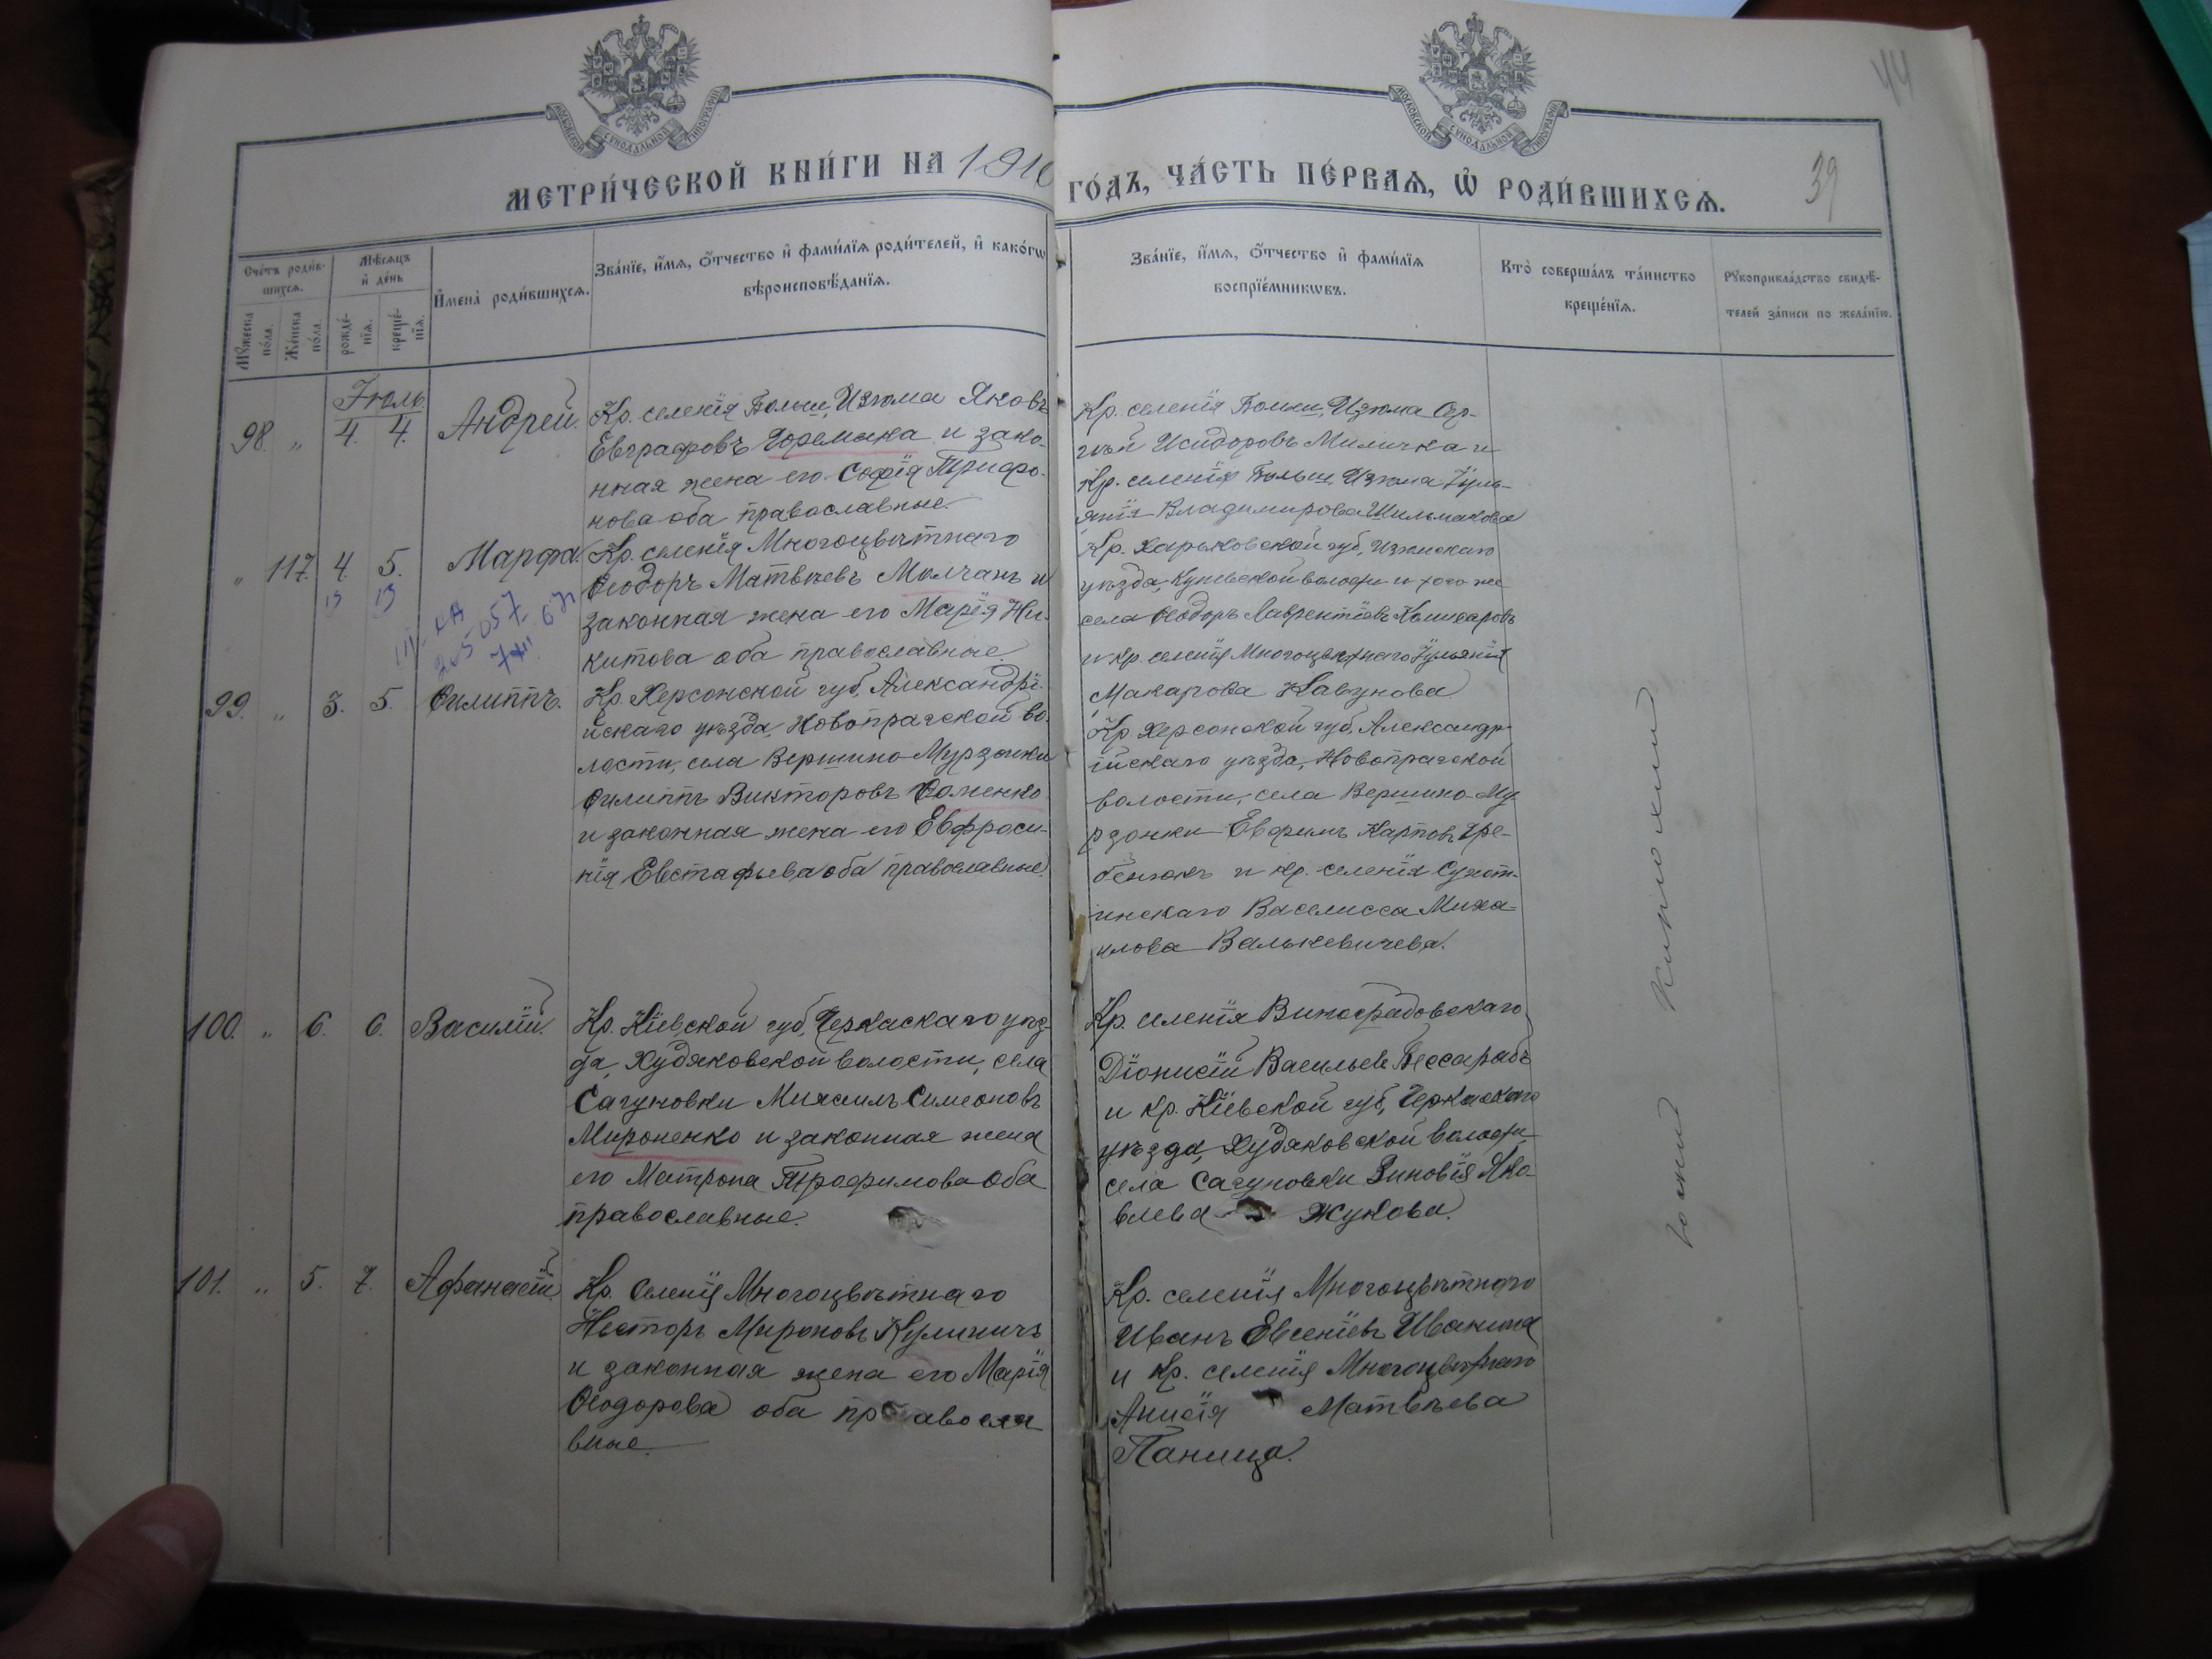 МОСКОВСКОЙ СѴНОДАЛЬНОЙ ТИПОГРАФІИ
МОСКОВСКОЙ СѴНОДАЛЬНОЙ ТИПОГРАФІИ
44
МЕТРИ́ЧЕСКОЙ КНИ́ГИ НА 1910
ГО́ДЪ, ЧА́СТЬ ПЕ́РВАѦ, Ѽ РОДИ́ВШИХСѦ.
39
Сче́тъ роди́в-
шихсѧ.
Мꙋ́жеска по́ла.
Же́нска по́ла.
Мѣ́сѧцъ
и҆ де́нь
рожде́-
нїѧ.
креще́-
нїѧ.
И҆мена̀ роди́вшихсѧ.
Зва́нїе, и҆́мѧ, ѻ҆́тчество и҆ фами́лїѧ роди́телей, и҆ како́гѡ
вѣроисповѣ́данїѧ.
Зва́нїе, и҆́мѧ, ѻ҆́тчество и҆ фами́лїѧ
воспрїе́мникѡвъ.
Кто̀ соверша́лъ та́инство
креще́нїѧ.
Рꙋкоприкла́дство свидѣ́-
телей за́писи по жела́нїю.
Іюль
98. „ 4. 4. Андрей.
Кр. селенія Больш. Изюма Яковъ
Евграфовъ Юремика и зако-
нная жена его Софія Трифо-
нова оба православные.
Кр. селенія Больш. Изюма Сер-
гѣй Исидоровъ Миличка и
Кр. селенія Больш. Изюма Іуль-
янія Владимирова Шильмакова
„ 117. 4. 5. Марфа.
Кр. селенія Многоцвѣтнаго
Ѳеодоръ Матвѣевъ Молчанъ и
законная жена его Марія Ни-
китова оба православные.
Кр. Харьковской губ, Изюмскаго
уѣзда, Куньевской волости и того же
села Ѳеодоръ Лаврентіевъ Комисаровъ
и кр. селенія Многоцвѣтнаго Іульянія
Макарова Кавунова
99. „ 3. 5. Филиппъ.
Кр. Херсонской губ, Александрі-
йскаго уѣзда, Новопрагской во-
лости, села Вершино-Мурзонки
Филиппъ Викторовъ Фоменко
и законная жена его Евфроси-
нія Евстафьева оба православные.
Кр. Херсонской губ, Александр-
ійскаго уѣзда, Новопрагской
волости, села Вершино-Му-
рзонки Евфимъ Карповъ Гре-
бенюкъ и кр. селенія Сухот-
инскаго Василисса Миха-
илова Валькевичева.
100. „ 6. 6. Василій.
Кр. Кіевской губ, Черкаскаго уѣз-
да, Худяковской волости, села
Сагуновки Михаилъ Симеоновъ
Мироненко и законная жена
его Матрона Трофимова оба
православные.
Кр. селенія Виноградовскаго
Діонисій Васильевъ Бессарабъ
и кр. Кіевской губ, Черкаскаго
уѣзда, Худяковской волости
села Сагуновки Зиновія Яко-
влева Жукова.
101. „ 5. 7. Афанасій.
Кр. селенія Многоцвѣтнаго
Несторъ Мироновъ Кулиничъ
и законная жена его Марія
Ѳеодорова оба правосла
вные.
Кр. селенія Многоцвѣтнаго
Иванъ Евсеніевъ Иванина
и кр. селенія Многоцвѣтнаго
Анисія Матвѣева
Паница.